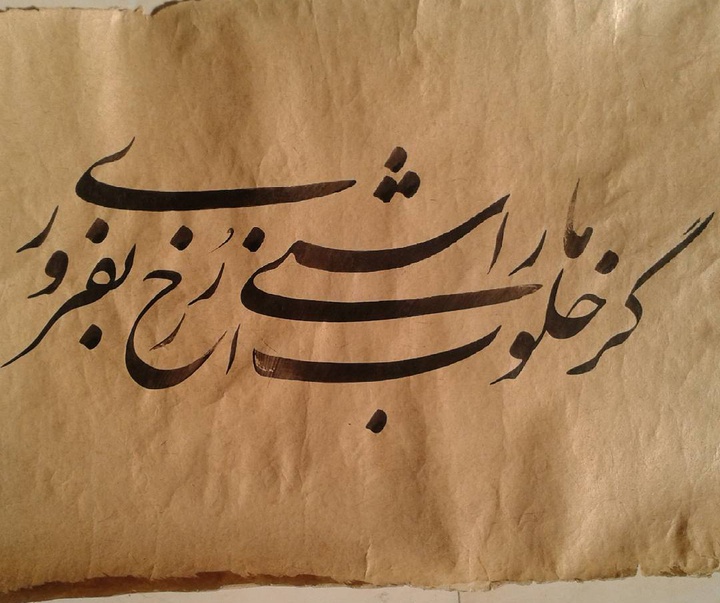 گر خلوت ما را شبی از رُخ بفروزی